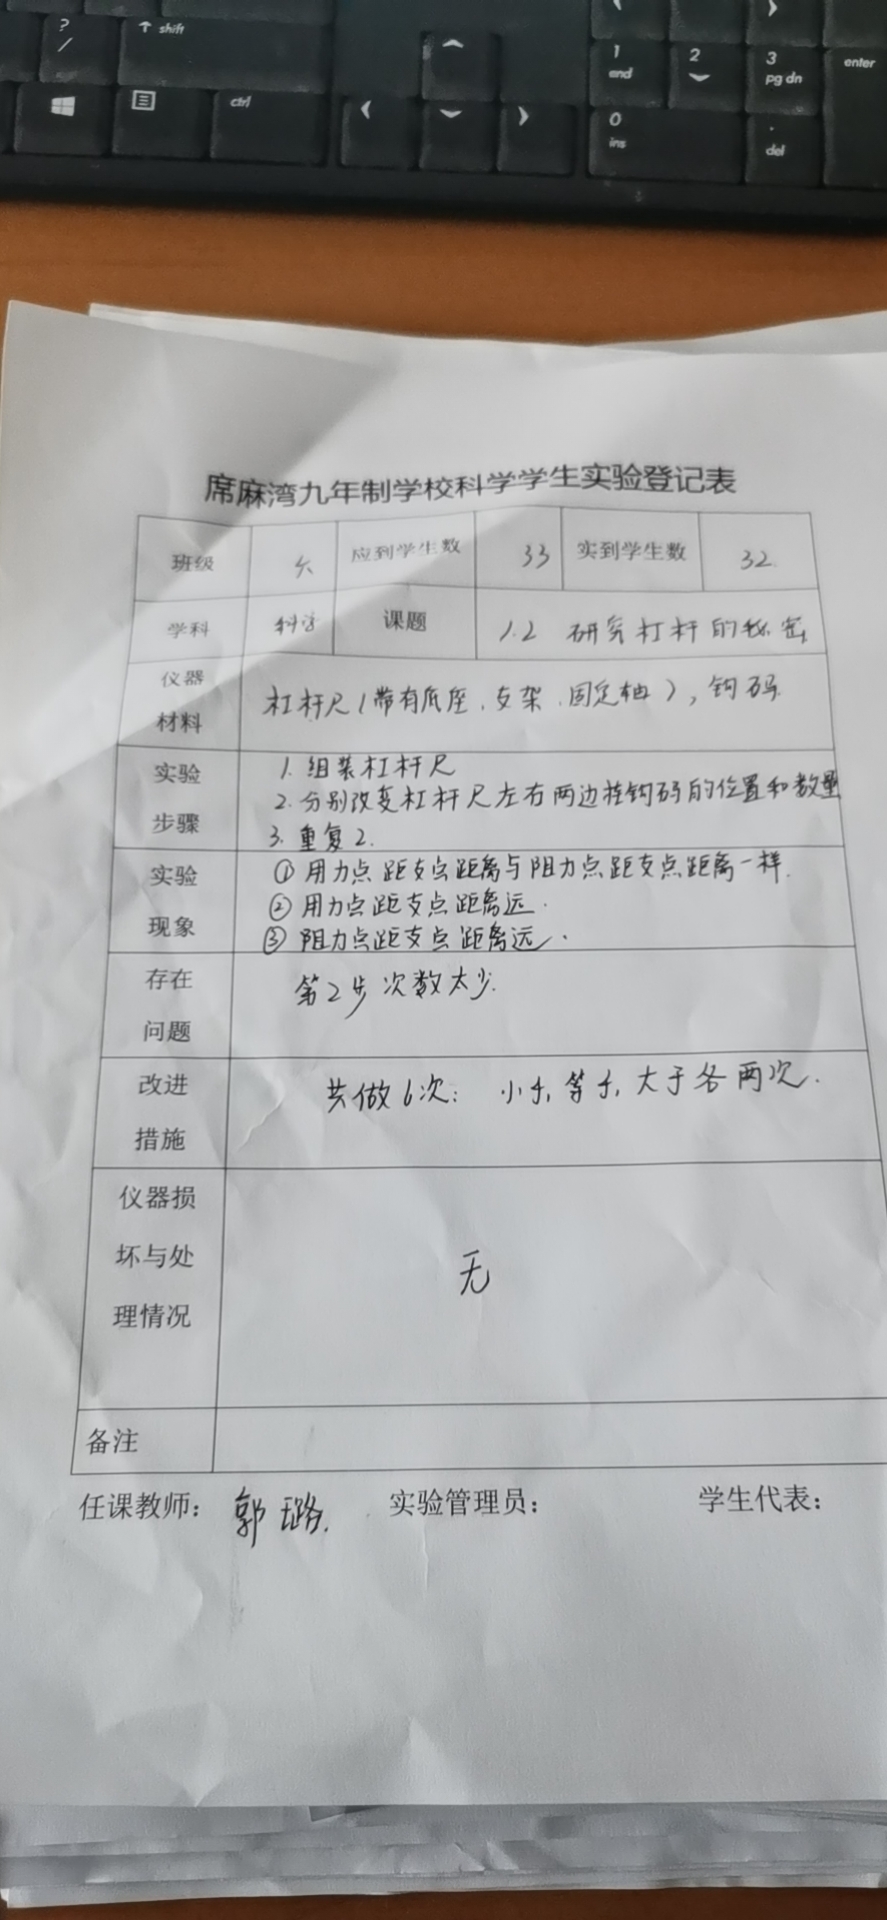 ?
/
↑ shift
ctrl
1
end
2
3
pg dn
enter
0
ins
.
del
席麻湾九年制学校科学学生实验登记表
班级 六 应到学生数 33 实到学生数 32
学科 科学 课题 1.2 研究杠杆的秘密
仪器
材料
杠杆尺(带有底座、支架、固定轴),钩码
实验
步骤
1. 组装杠杆尺
2. 分别改变杠杆尺左右两边挂钩码的位置和数量
3. 重复2.
实验
现象
① 用力点距支点距离与阻力点距支点距离一样.
② 用力点距支点距离远.
③ 阻力点距支点距离远.
存在
问题
第2步次数太少.
改进
措施
共做6次: 小于,等于,大于各两次.
仪器损
坏与处
理情况
无
备注
任课教师: 郭璐. 实验管理员: 学生代表: